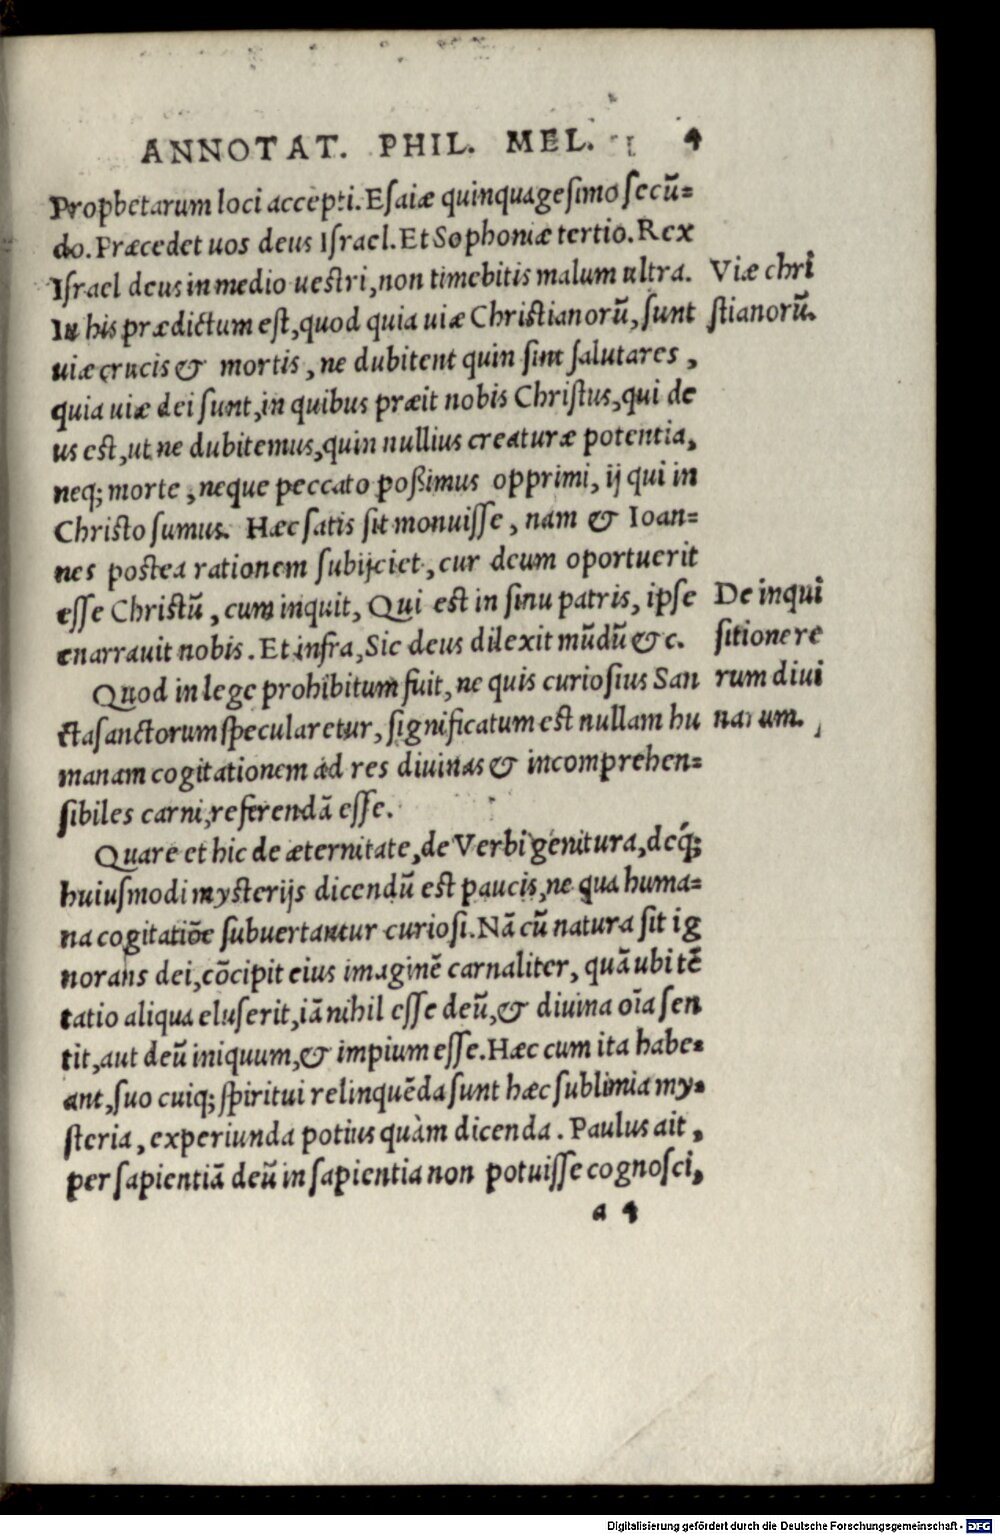 ANNOTAT. PHIL. MEL. 4
Prophetarum loci accepti. Esaiæ quinquagesimo secũ=
do. Præcedet uos deus Israel. Et Sophoniæ tertio. Rex
Israel deus in medio uestri, non timebitis malum ultra.
In his prædictum est, quod quia uiæ Christianorũ, sunt
uiæ crucis & mortis, ne dubitent quin sint salutares,
quia uiæ dei sunt, in quibus præit nobis Christus, qui de
us est, ut ne dubitemus, quin nullius creaturæ potentia,
neq; morte, neque peccato poßimus opprimi, ij qui in
Christo sumus. Hæc satis sit monuisse, nam & Ioan=
nes postea rationem subijciet, cur deum oportuerit
esse Christũ, cum inquit, Qui est in sinu patris, ipse
enarrauit nobis. Et infra, Sic deus dilexit mũdũ &c.
Quod in lege prohibitum fuit, ne quis curiosius San
cta sanctorum specularetur, significatum est nullam hu
manam cogitationem ad res diuinas & incomprehen=
sibiles carni, referendã esse.
Quare et hic de æternitate, de Verbi genitura, deq́;
huiusmodi mysterijs dicendũ est paucis, ne qua huma=
na cogitatiõe subuertantur curiosi. Nã cũ natura sit ig
norans dei, cõcipit eius imaginẽ carnaliter, quã ubi tẽ
tatio aliqua eluserit, iã nihil esse deũ, & diuina oĩa sen
tit, aut deũ iniquum, & impium esse. Hæc cum ita habe=
ant, suo cuiq; spiritui relinquẽda sunt hæc sublimia my=
steria, experiunda potius quàm dicenda. Paulus ait,
per sapientiã deũ in sapientia non potuisse cognosci,
a 4
Viæ chri
stianorũ.
De inqui
sitione re
rum diui
narum.
Digitalisierung gefördert durch die Deutsche Forschungsgemeinschaft - DFG